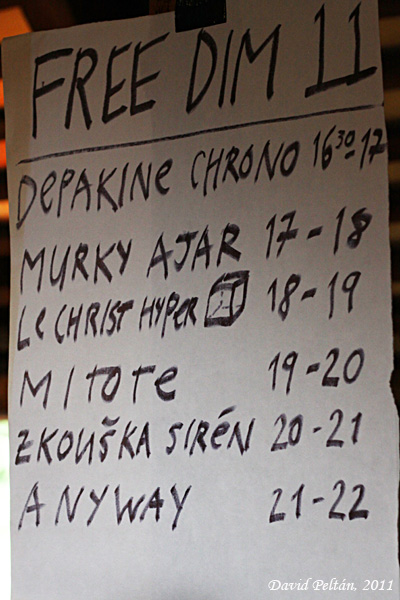 FREE DIM 11
DEPAKINE CHRONO 16³⁰-17
MURKY AJAR 17-18
LE CHRIST HYPER 18-19
MITOTE 19-20
ZKOUŠKA SIRÉN 20-21
ANYWAY 21-22
David Peltán, 2011